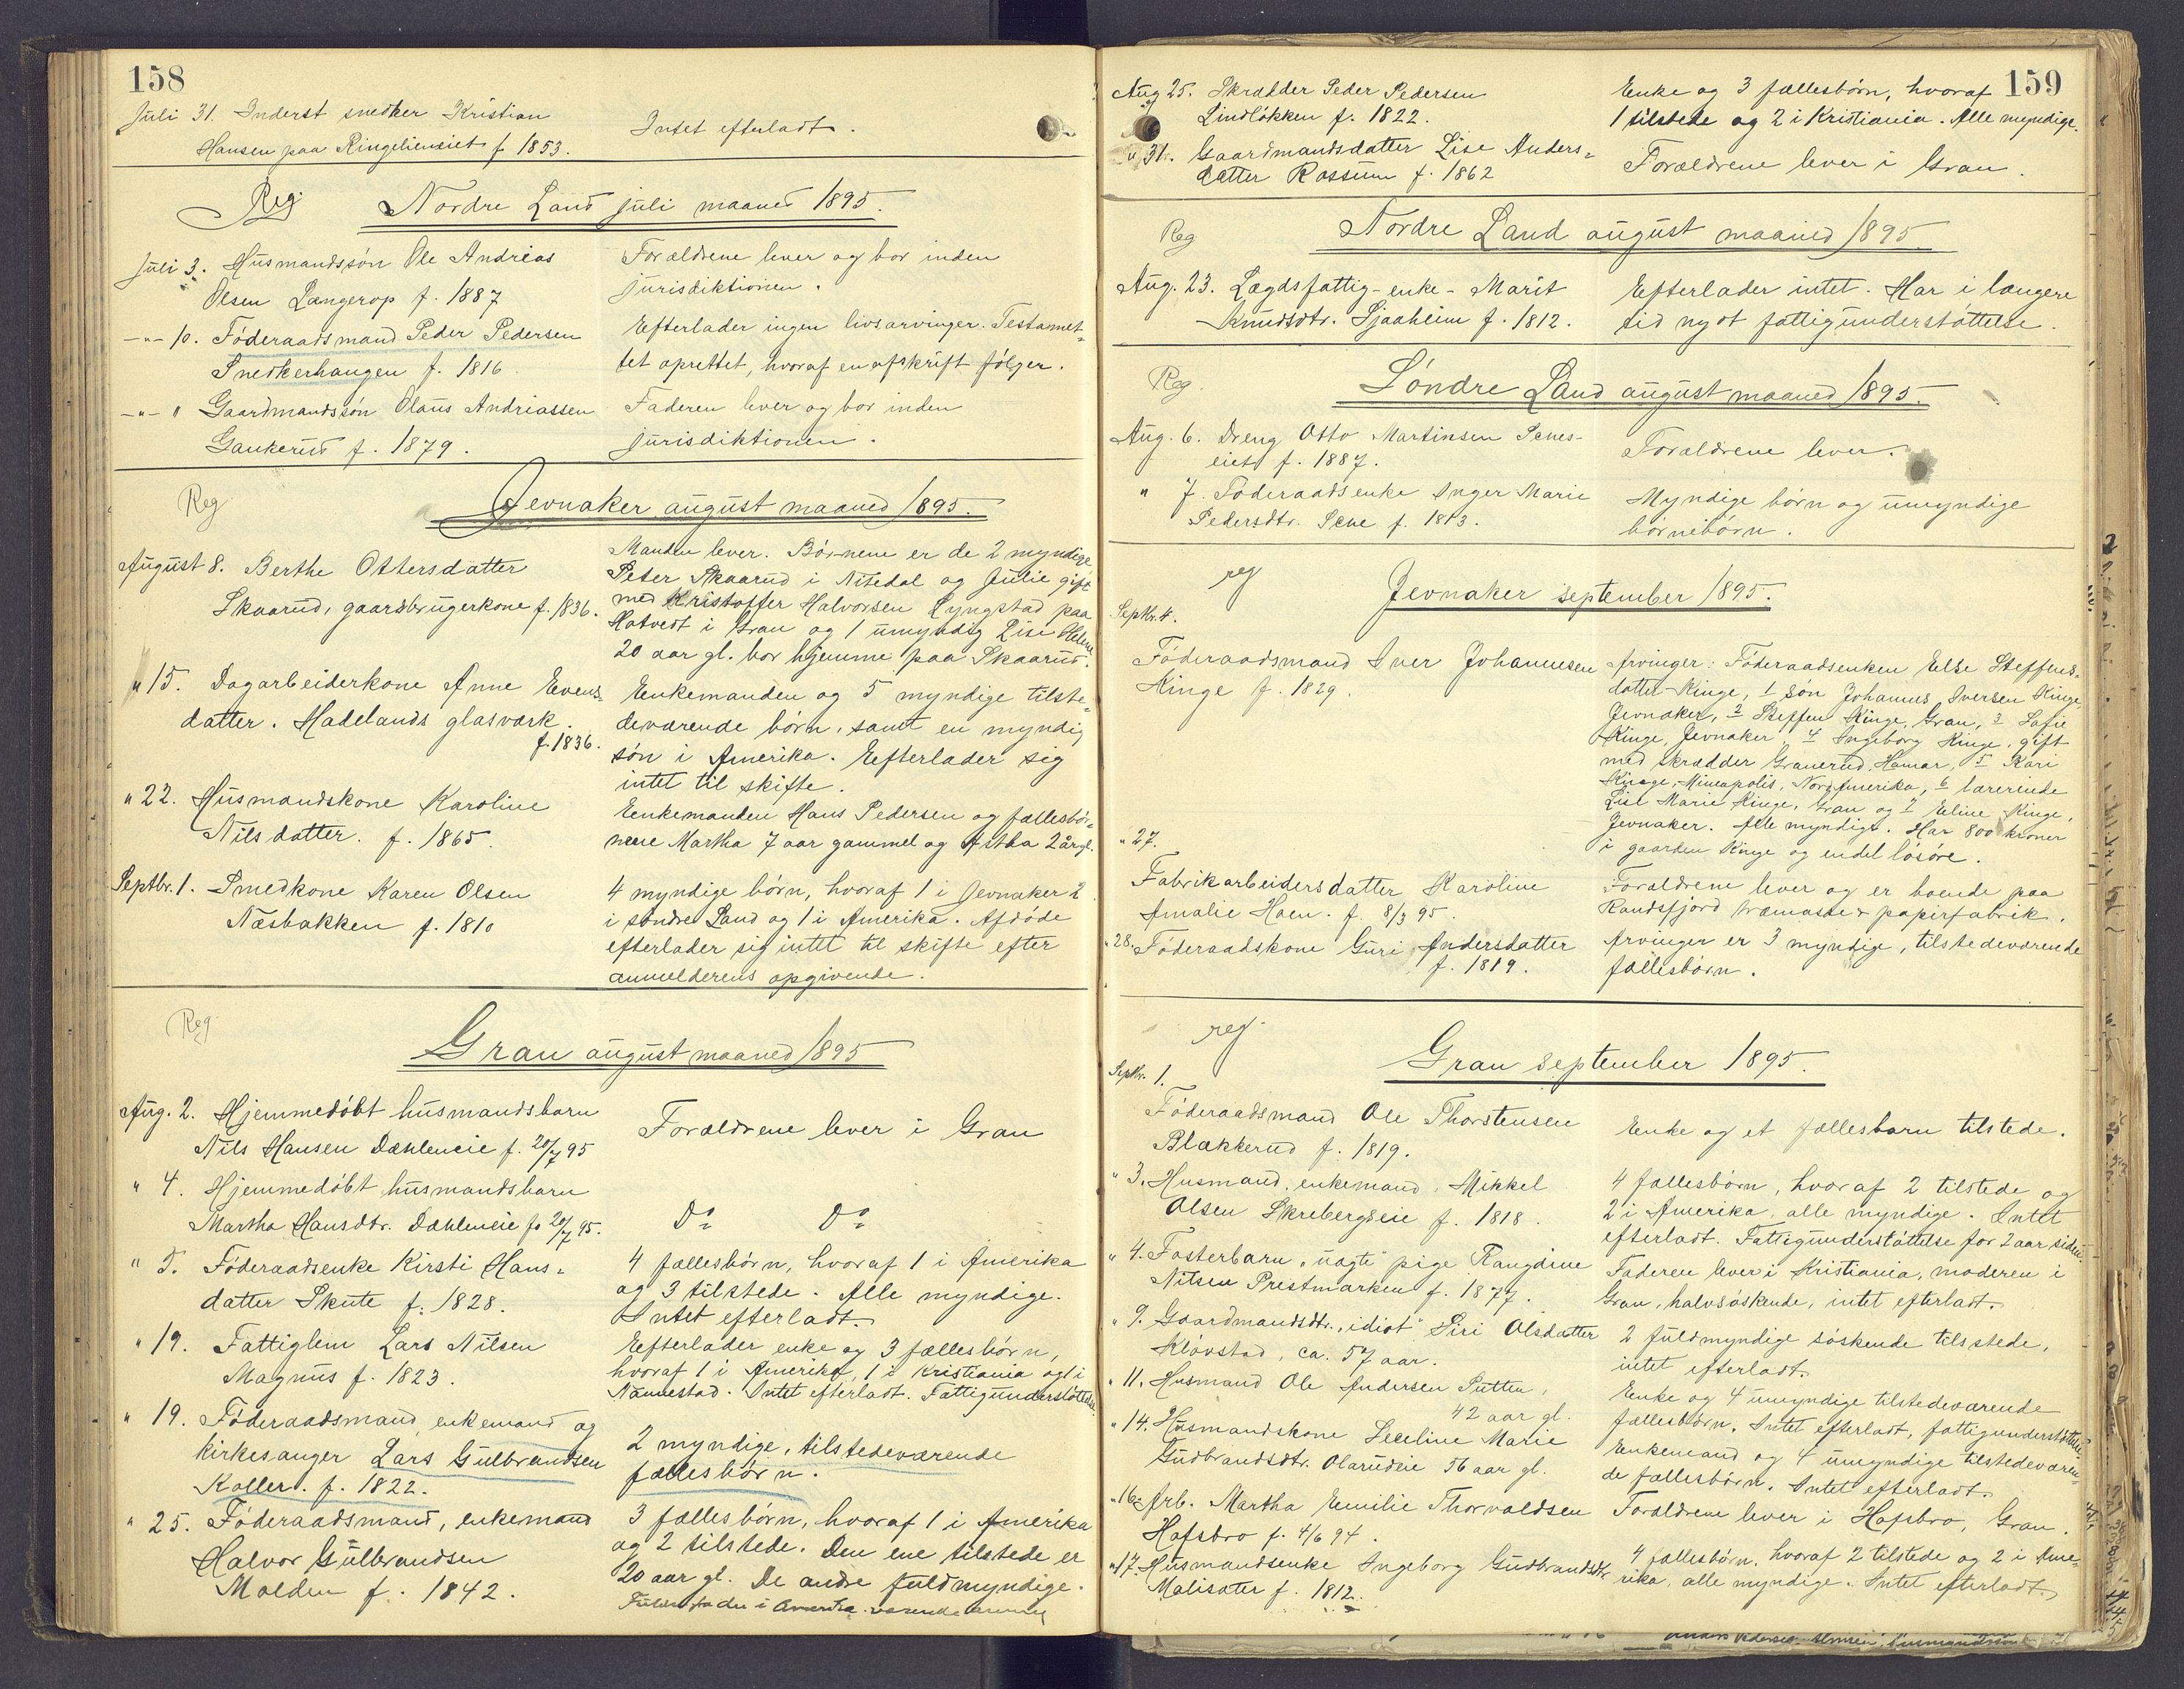 158
Juli 31. Inderst snedker Kristian
Hansen paa Ringelieneiet f. 1853.
Intet efterladt.
Reg
Nordre Land juli maaned 1895.
Juli 3. Husmandssøn Ole Andreas
Olsen Længerop f. 1887
Forældrene lever og bor inden
jurisdiktionen.
-"- 10. Føderaadsmand Peder Pedersen
Snedkerhaugen f. 1816
Efterlader ingen livsarvinger. Testamet-
tet oprettet, hvoraf en afskrift følger.
-"- " Gaardmandssøn Olaus Andriassen
Gaukerud f. 1879.
Faderen lever og bor inden
jurisdiktionen.
Reg
Jevnaker august maaned 1895.
August 8. Berthe Ottersdatter
Skaarud, gaardbrugerkone f. 1836.
Manden lever. Børnene er de 2 myndige
Peter Skaarud i Nitedal og Julie gift
med Kristoffer Halvorsen Lyngstad paa
Hotvedt i Gran og 1 umyndig Lise Helene
20 aar gl. bor hjemme paa Skaarud.
" 15. Dagarbeiderkone Anne Evens-
datter. Hadelands glasværk.
f. 1836.
Enkemanden og 5 myndige tilste-
deværende børn, samt en myndig
søn i Amerika. Efterlader sig
intet til skifte.
" 22. Husmandskone Karoline
Nilsdatter. f. 1865.
Enkemanden Hans Pedersen og fællesbør-
nene Martha 7 aar gammel og Astha 2 år gl.
Septbr. 1. Smedkone Karen Olsen
Næsbakken f. 1810
4 myndige børn, hvoraf 1 i Jevnaker 2
i søndre Land og 1 i Amerika. Afdøde
efterlader sig intet til skifte efter
anmelderens opgivende.
Reg
Gran august maaned 1895
Aug. 2. Hjemmedøbt husmandsbarn
Nils Hansen Dæhleneie f. 20/7 95
Forældrene lever i Gran
" 4. Hjemmedøbt husmandsbarn
Martha Hansdtr. Dæhleneie f. 20/7 95.
Do Do
" 5. Føderaadsenke Kirsti Hans-
datter Skute f. 1828.
4 fællesbørn, hvoraf 1 i Amerika
og 3 tilstede. Alle myndige.
Intet efterladt.
" 19. Fattiglem Lars Nilsen
Magnus f. 1823.
Efterlader enke og 3 fællesbørn,
hvoraf 1 i Amerika, 1 i Kristiania og 1 i
Nannestad. Intet efterladt. Fattigunderstøttelse.
" 19. Føderaadsmand, enkemand og
kirkesanger Lars Gulbrandsen
Koller. f. 1822.
2 myndige, tilstedeværende
fællesbørn.
" 25. Føderaadsmand, enkemand
Halvor Gulbrandsen
Molden f. 1842.
3 fællesbørn, hvoraf 1 i Amerika
og 2 tilstede. Den ene tilstede er
20 aar gl. De andre fuldmyndige.
i Amerika værende
159
Aug 25. Skrædder Peder Pedersen
Lindløkken f. 1822.
Enke og 3 fællesbørn, hvoraf
1 tilstede og 2 i Kristiania. Alle myndige.
" 31. Gaardmandsdatter Lise Anders-
datter Rossum f. 1862
Forældrene lever i Gran.
Reg
Nordre Land august maaned 1895
Aug. 23. Lægdsfattig-enke- Marit
Knudsdtr. Sjaaheim f. 1812.
Efterlader intet. Har i længere
tid nydt fattigunderstøttelse.
Reg.
Søndre Land august maaned 1895.
Aug. 6. Dreng Otto Martinsen Senes-
eiet f. 1887.
Forældrene lever.
" 7. Føderaadsenke Inger Marie
Pedersdtr. Sene f. 1813.
Myndige børn og umyndige
børnebørn.
reg
Jevnaker september 1895.
Septbr. 4.
Føderaadsmand Iver Johannesen
Kinge f. 1829.
Arvinger: Føderaadsenken Else Steffens-
datter Kinge, 1 søn Johannes Iversen Kinge
Jevnaker, 2 Steffen Kinge, Gran, 3 Sofie
Kinge, Jevnaker 4 Ingeborg Kinge, gift
med skrædder Granerud, Hamar, 5 Kari
Kinge, Mineapolis, Nordamerika, 6 lærerinde
Lise Marie Kinge, Gran og 7 Eline Kinge,
Jevnaker. Alle myndige. Har 800 kroner
i gaarden Kinge og endel løsøre.
" 27.
Fabrikarbeidersdatter Karoline
Amalie Hoen. f. 8/3 95.
Forældrene lever og er boende paa
Randsfjord træmasse & papirfabrik.
" 28. Føderaadskone Guri Andersdatter
f. 1819.
Arvinger er 3 myndige, tilstedeværende
fællesbørn.
reg
Gran september 1895.
Septbr. 1.
Føderaadsmand Ole Thorstensen
Blækkerud f. 1819.
Enke og et fællesbarn tilstede.
" 3. Husmand, enkemand, Mikkel
Olsen Skrebergseie f. 1818.
4 fællesbørn, hvoraf 2 tilstede og
2 i Amerika, alle myndige. Intet
efterladt. Fattigunderstøttelse for 2 aar siden.
" 4. Fosterbarn, uægte pige Rangdine
Nilsen Prestmarken f. 1877.
Faderen lever i Kristiania, moderen i
Gran, halvsøskende, intet efterladt.
" 9. Gaardmandsdtr., "idiot" Siri Olsdatter
Kløvstad, ca. 57 aar.
2 fuldmyndige søskende tilstede,
intet efterladt.
" 11. Husmand Ole Andersen Putten,
42 aar gl.
Enke og 4 umyndige tilstedeværende
fællesbørn. Intet efterladt, fattigunderstøttelse.
" 14. Husmandskone Seceline Marie
Gudbrandsdtr. Olarudeie 56 aar gl.
Enkemand og 4 umyndige tilstedeværen-
de fællesbørn. Intet efterladt.
" 16. Arb. Martha Emilie Thorvaldsen
Hofsbro f. 4/6 94.
Forældrene lever i Hofsbro, Gran.
" 17. Husmandsenke Ingeborg Gudbrandsdtr.
Malisæter f. 1812.
4 fællesbørn, hvoraf 2 tilstede og 2 i Ame-
rika, alle myndige. Intet efterladt.